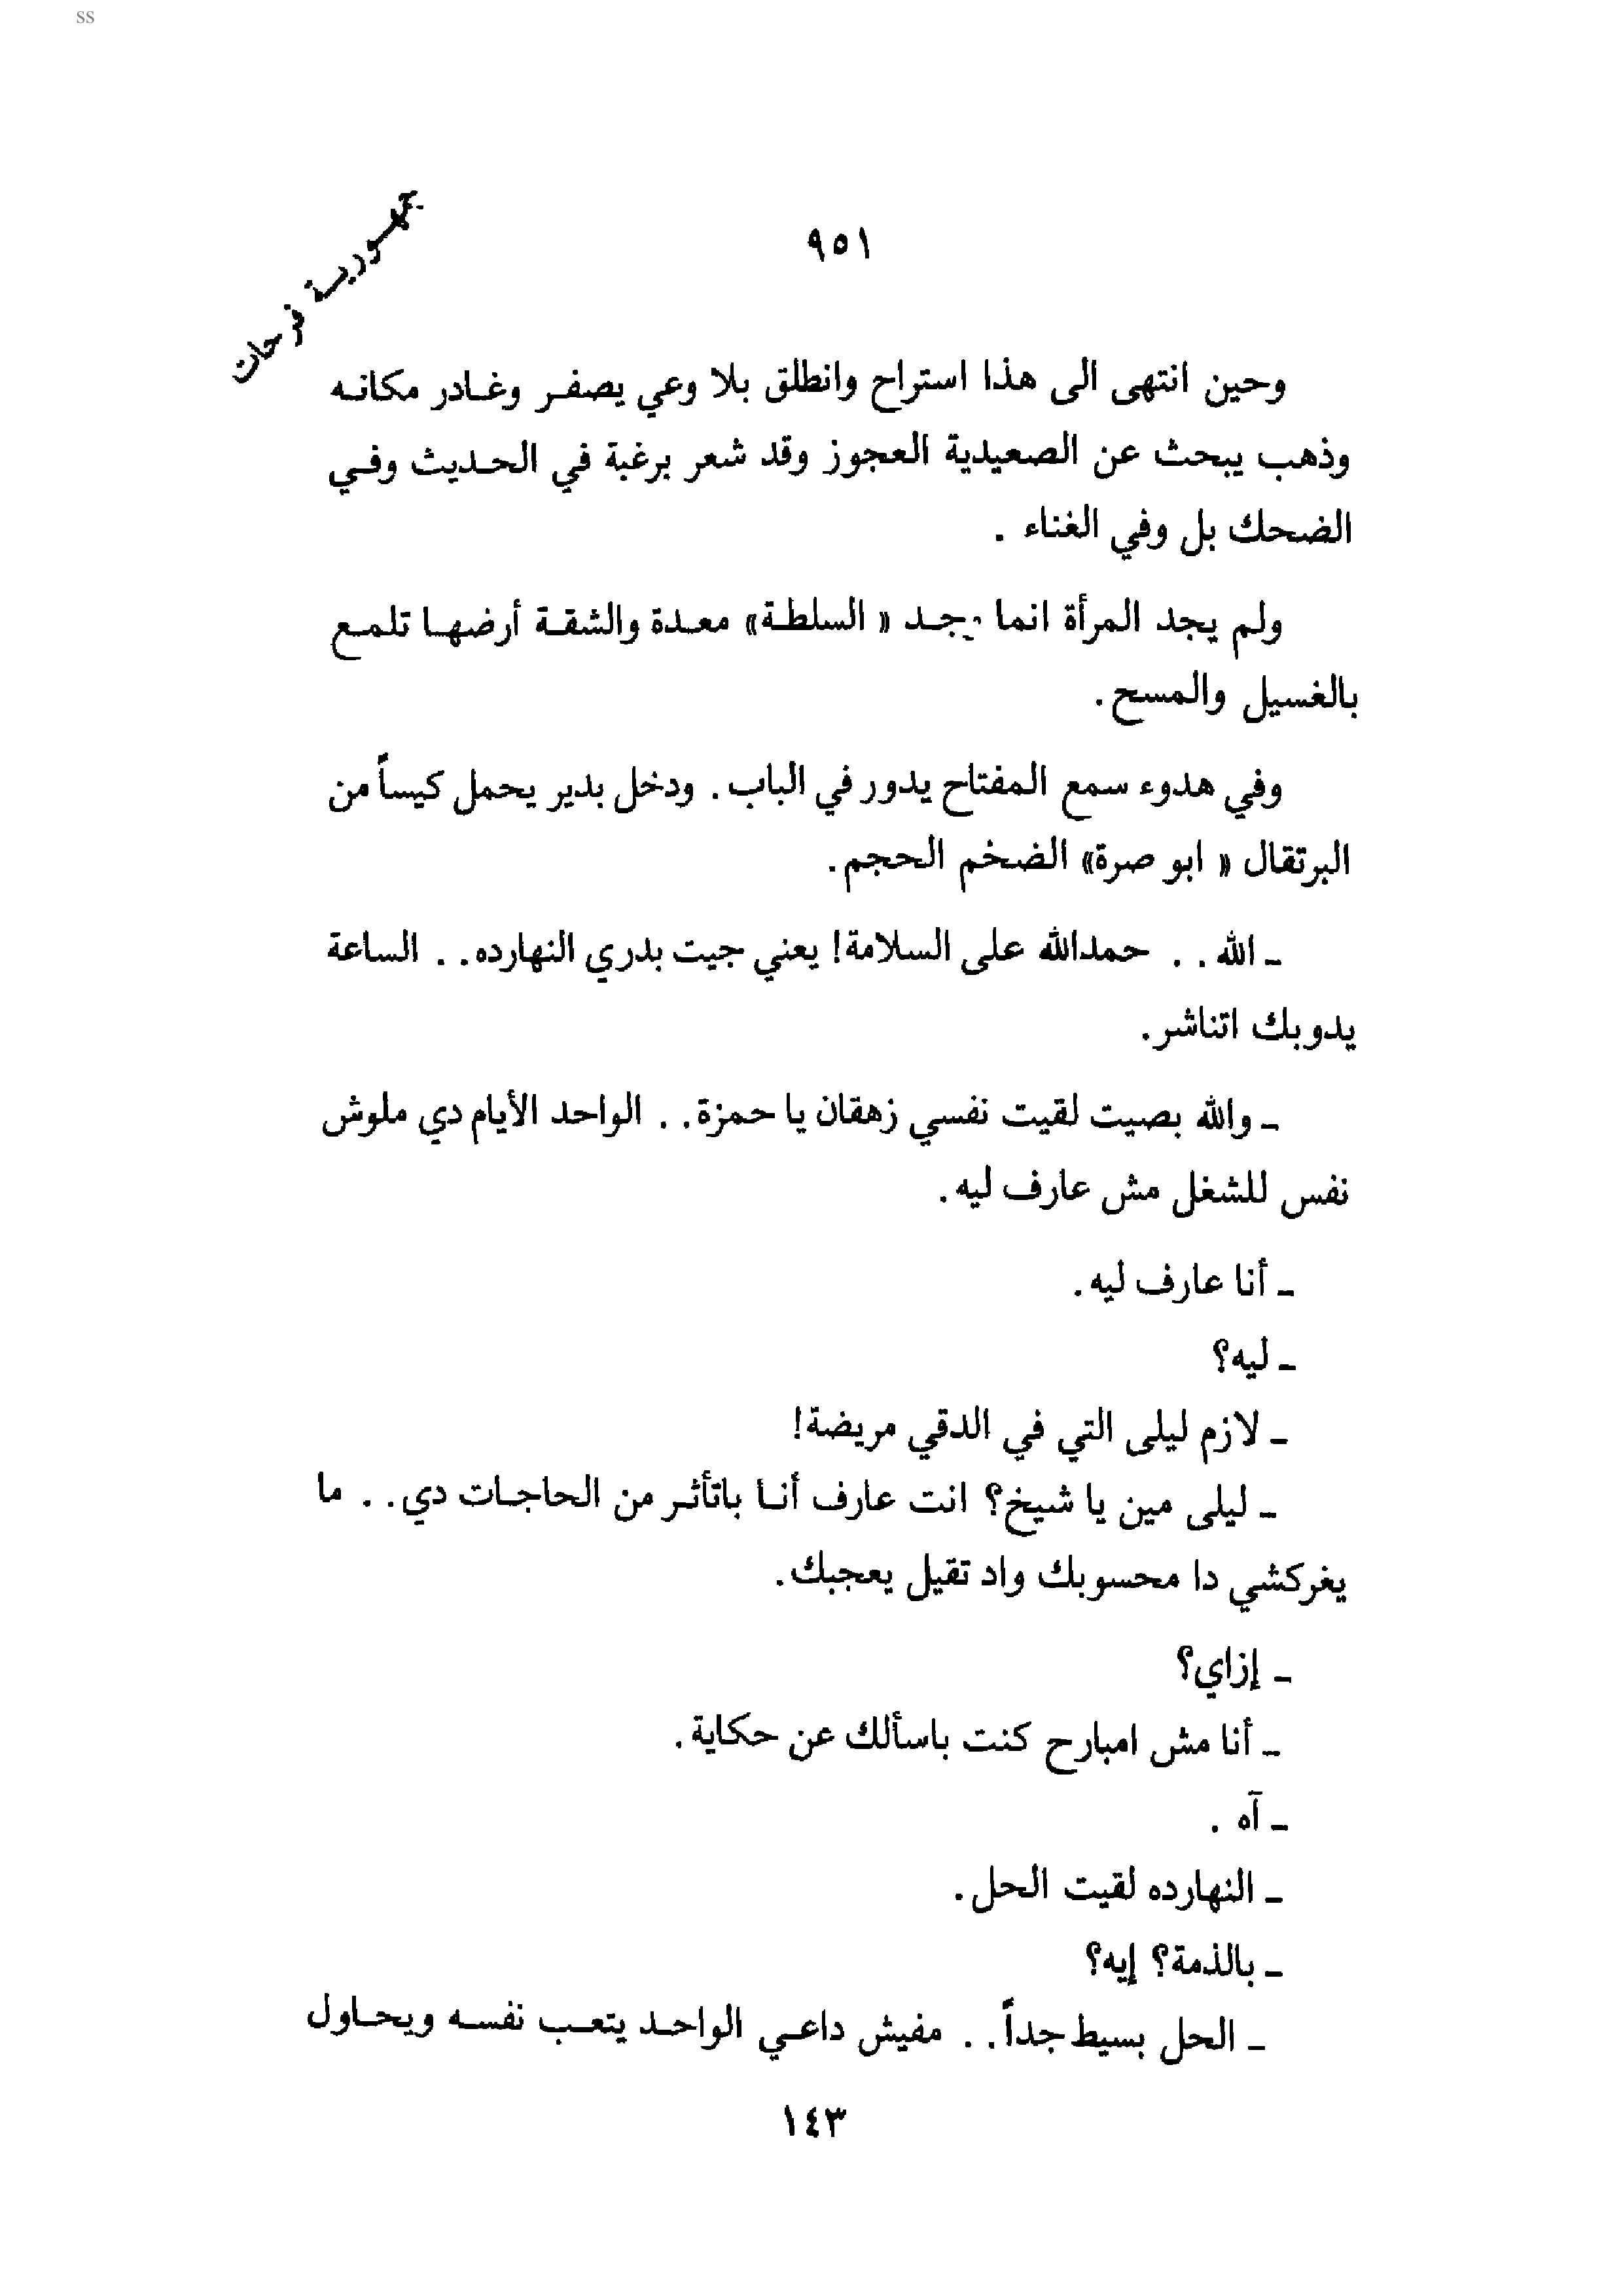 ss
جمهورية فرحات
٩٥١
وحين انتهى الى هذا استراح وانطلق بلا وعي يصفر وغادر مكانه
وذهب يبحث عن الصعيدية العجوز وقد شعر برغبة في الحديث وفي
الضحك بل وفي الغناء .
ولم يجد المرأة انما وجد « السلطة» معدة والشقة أرضها تلمع
بالغسيل والمسح.
وفي هدوء سمع المفتاح يدور في الباب. ودخل بدير يحمل كيساً من
البرتقال « ابو صرة» الضخم الحجم.
ـ الله . . حمدالله على السلامة! يعني جيت بدري النهارده. . الساعة
يدوبك اتناشر.
ـ والله بصيت لقيت نفسي زهقان يا حمزة. . الواحد الأيام دي ملوش
نفس للشغل مش عارف ليه.
ـ أنا عارف ليه.
ـ ليه؟
ـ لازم ليلى التي في الدقي مريضة!
ـ ليلى مين يا شيخ؟ انت عارف أنا باتأثر من الحاجات دي. . ما
يغركشي دا محسوبك واد تقيل يعجبك.
ـ إزاي؟
ـ أنا مش امبارح كنت باسألك عن حكاية.
ـ آه .
ـ النهارده لقيت الحل.
ـ بالذمة؟ إيه؟
ـ الحل بسيط جداً. . مفيش داعي الواحد يتعب نفسه ويحاول
١٤٣